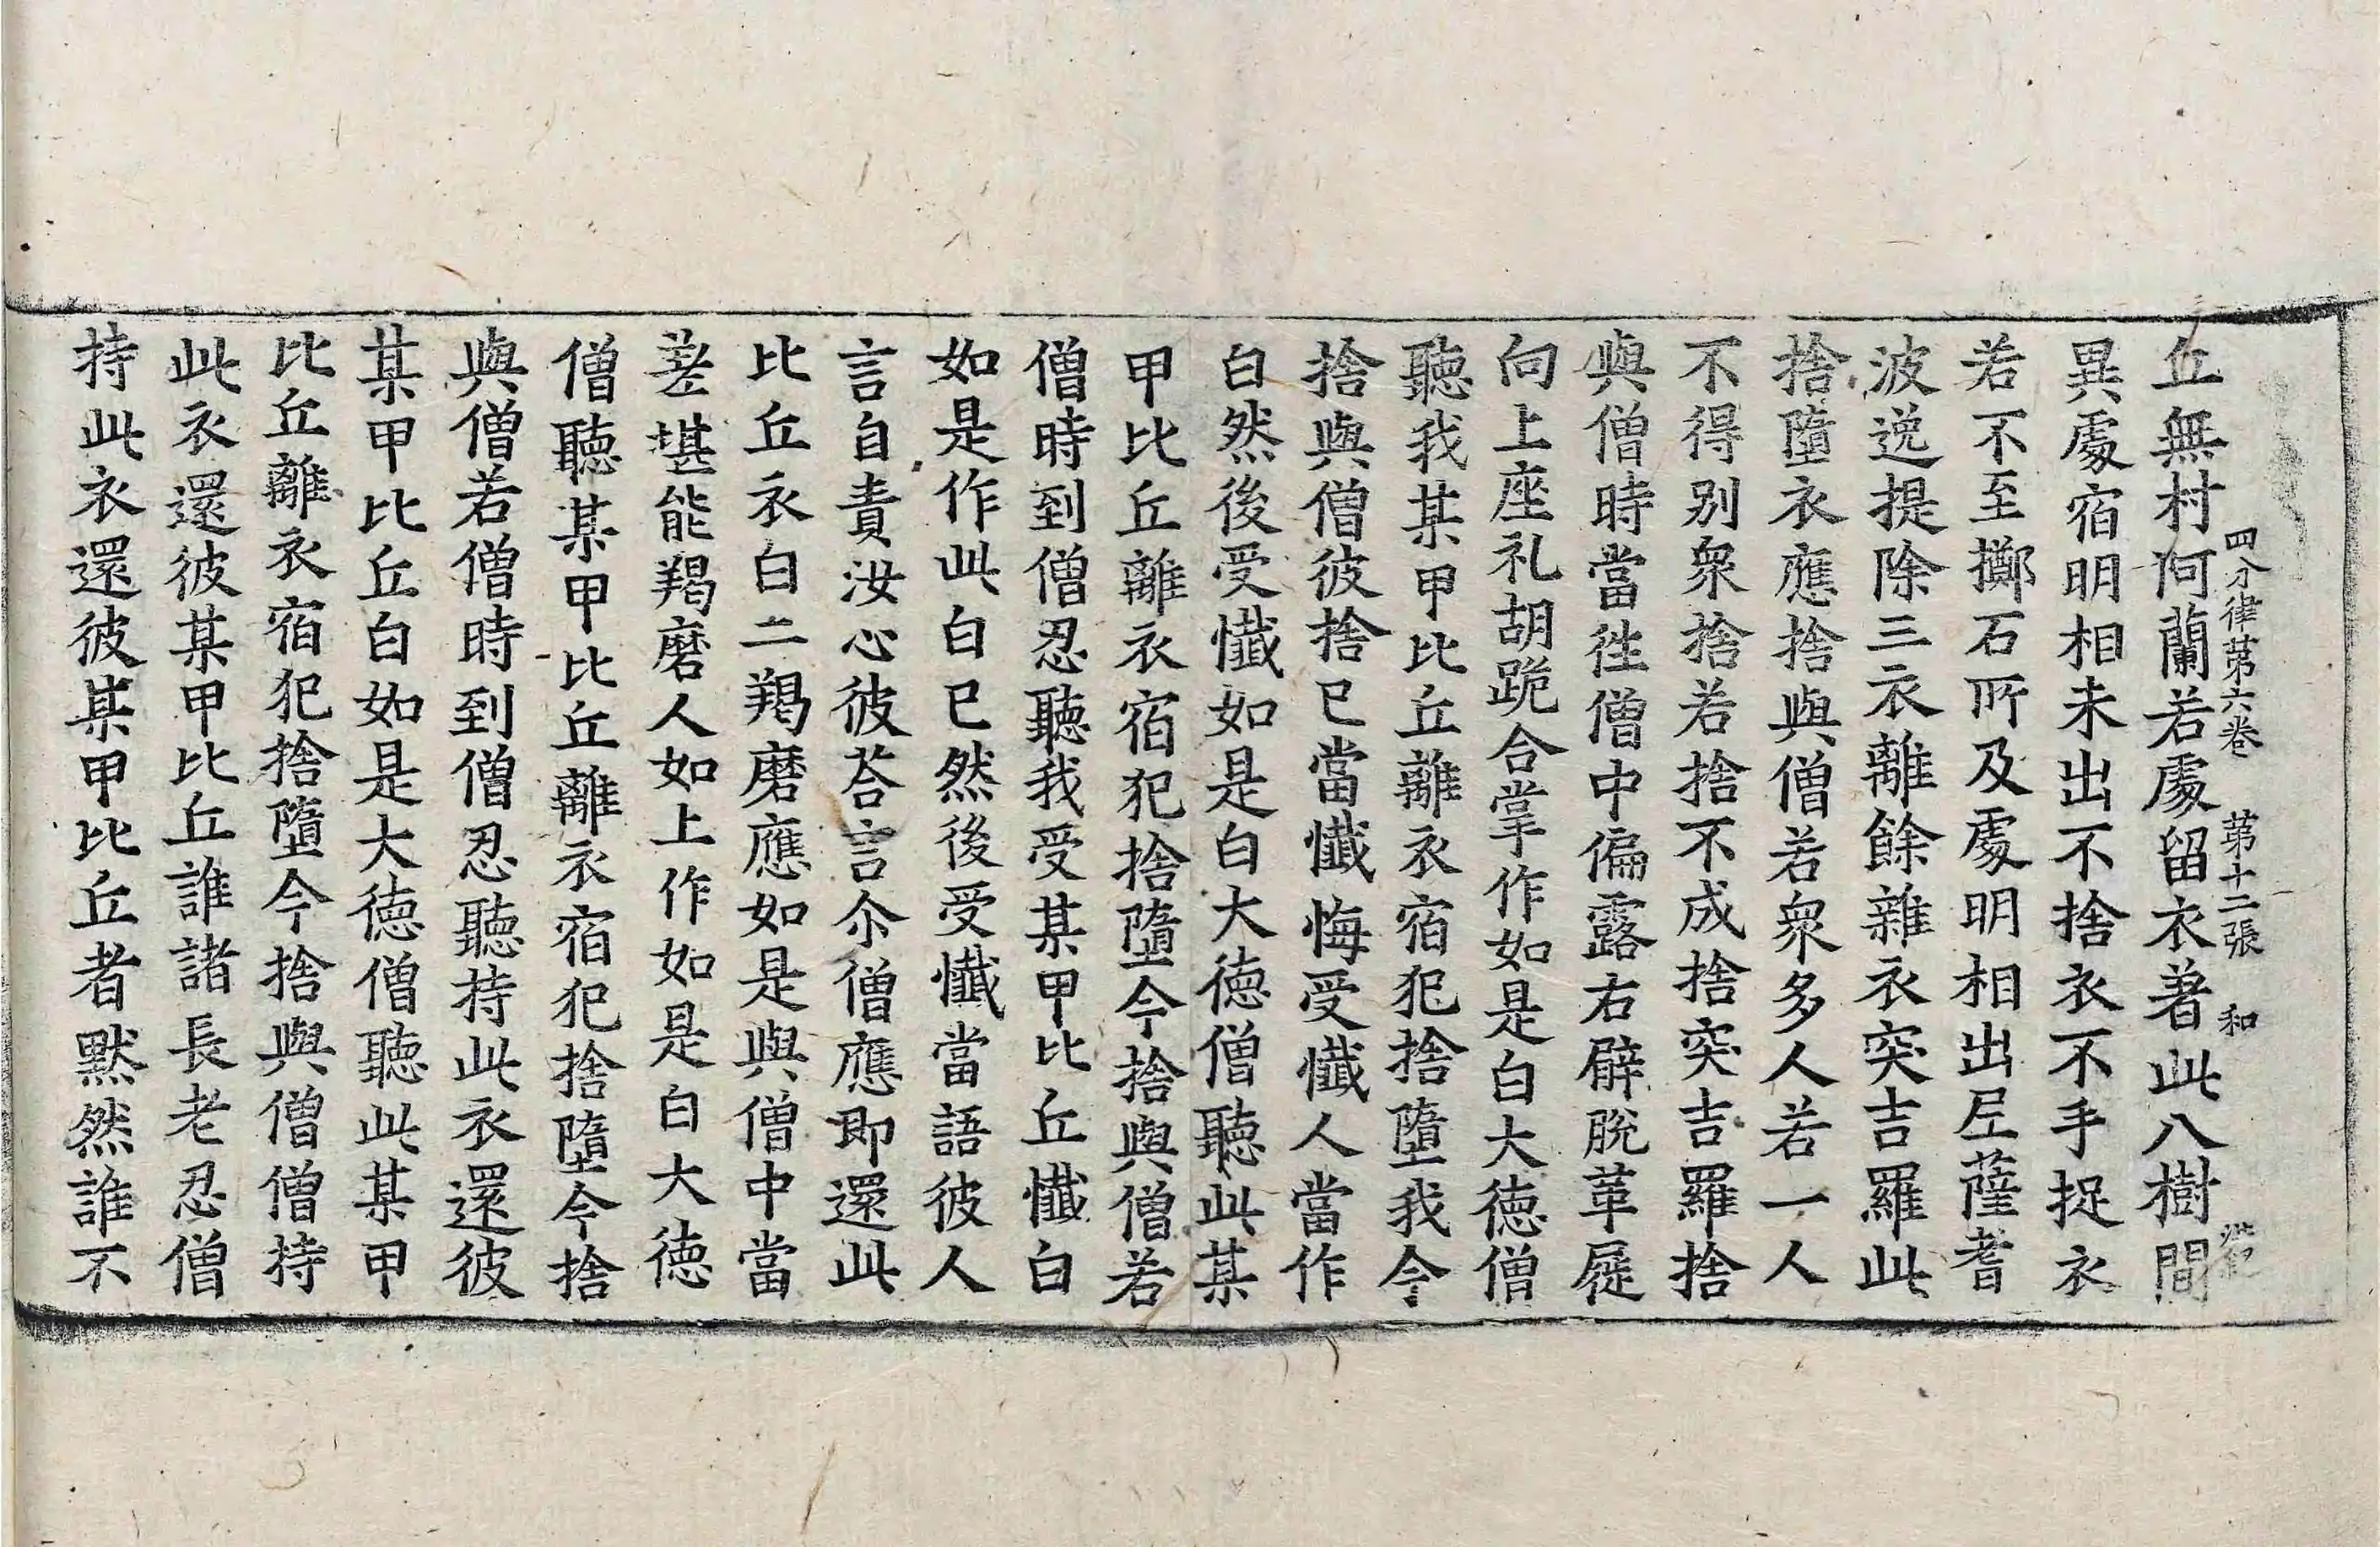 丘無村阿蘭若處留衣著此八樹間
四分律苐六卷 苐十二張 和
異處宿明相未出不捨衣不手捉衣
若不至擲石所及處明相出尼薩耆
波逸提除三衣離餘雜衣突吉羅此
捨墮衣應捨與僧若衆多人若一人
不得别衆捨若捨不成捨突吉羅捨
與僧時當徃僧中偏露右臂脫革屣
向上座礼胡跪合掌作如是白大德僧
聽我某甲比丘離衣宿犯捨墮我今
捨與僧彼捨已當懺悔受懺人當作
白然後受懺如是白大德僧聽此某
甲比丘離衣宿犯捨墮今捨與僧若
僧時到僧忍聽我受某甲比丘懺白
如是作此白已然後受懺當語彼人
言自責汝心彼荅言尒僧應即還此
比丘衣白二羯磨應如是與僧中當
差堪能羯磨人如上作如是白大德
僧聽某甲比丘離衣宿犯捨墮今捨
與僧若僧時到僧忍聽持此衣還彼
某甲比丘白如是大德僧聽此某甲
比丘離衣宿犯捨墮今捨與僧僧持
此衣還彼某甲比丘誰諸長老忍僧
持此衣還彼某甲比丘者默然誰不